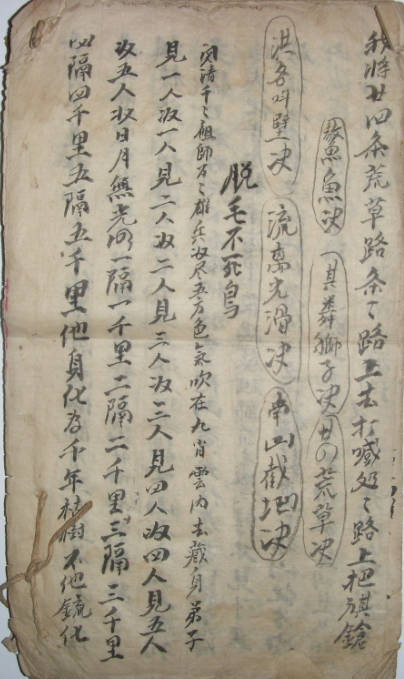 我將廿四条荒草路条々路上去打喊处々路上把旗鎗
魚决 其葬獅子决 廿の荒草决
洪 叫壁决 流 光滑决 南山截地决
脱毛不死鸟
清千々祖師百々雄兵收尽五方色氣吹在九肖雲内去藏身弟子
見一人收一人見二人收二人見三人收三人見四人收四人見五人
收五人收日月無光 一隔一千里二隔二千里三隔三千里
四隔四千里五隔五千里他身化為千年枯樹不他 化